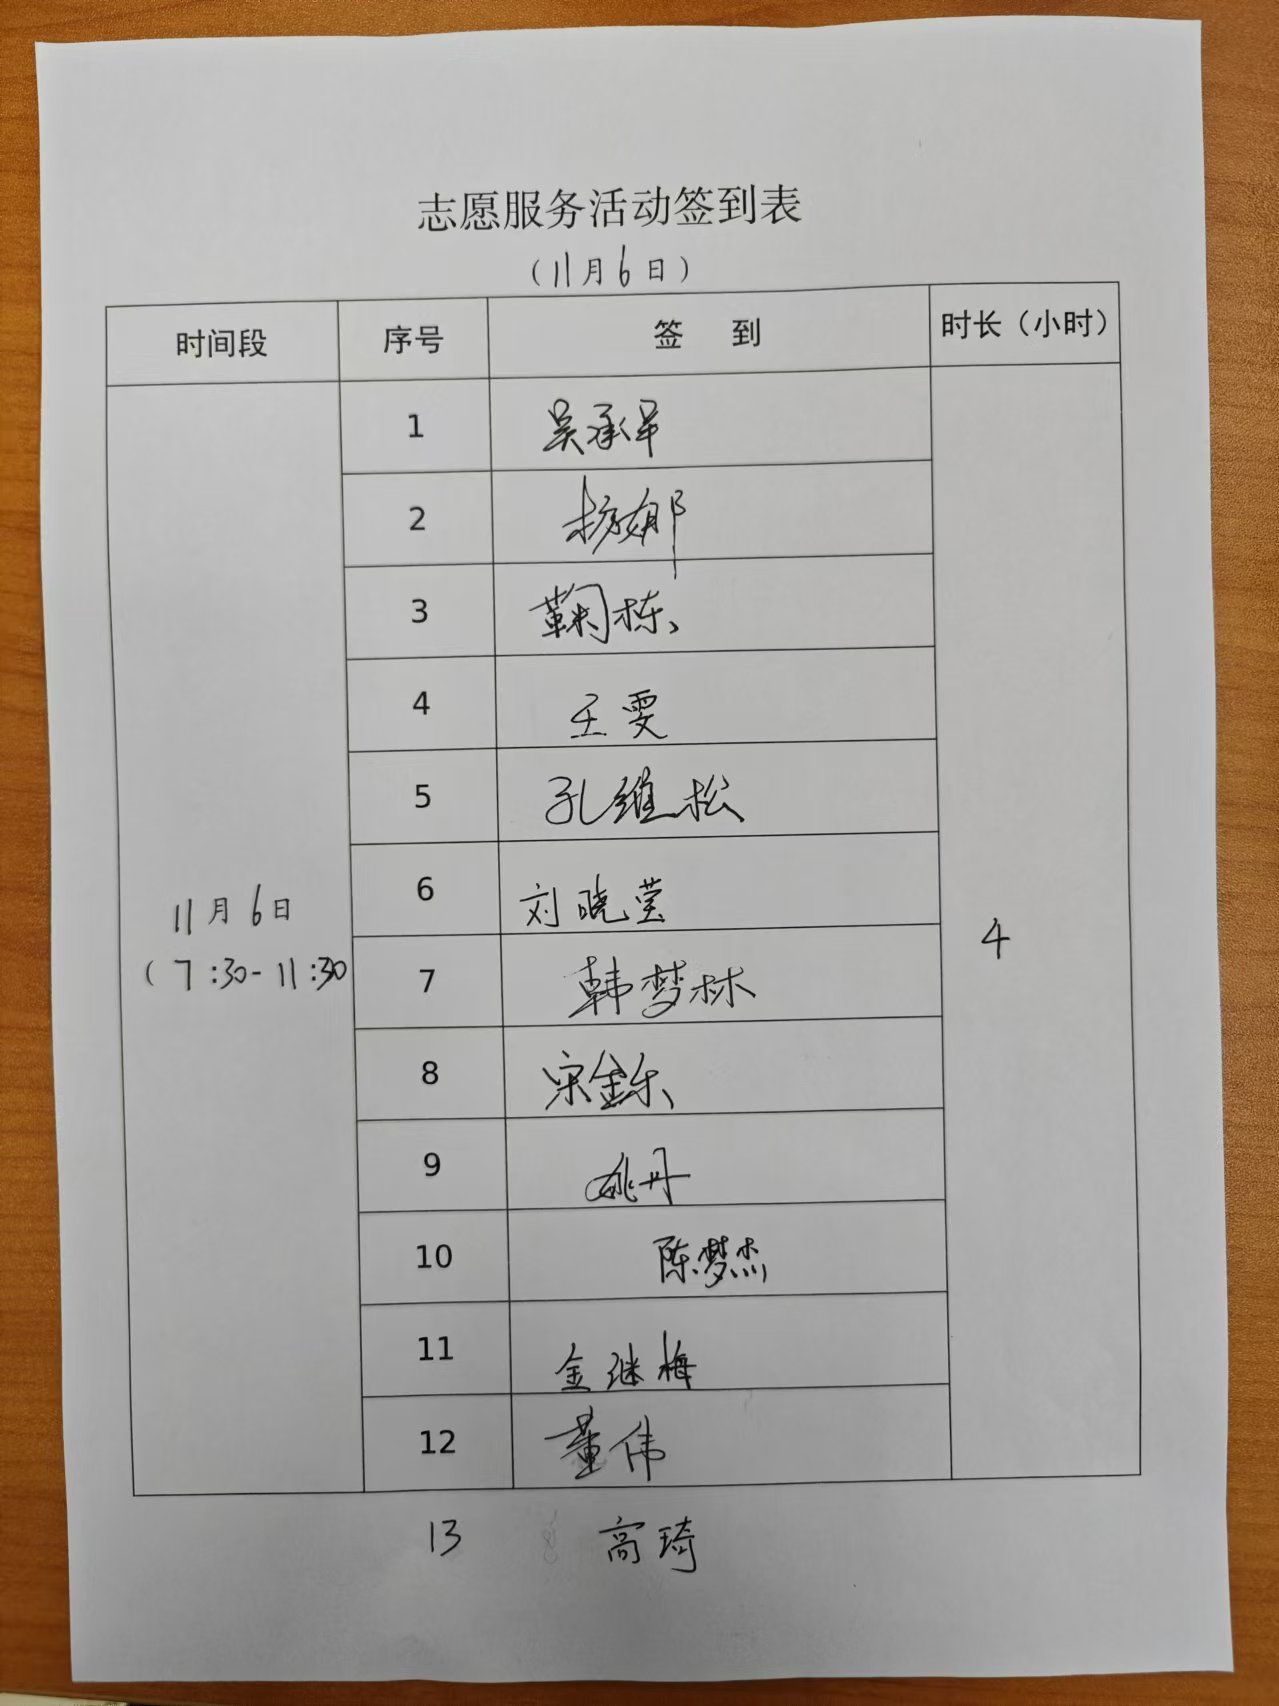 志愿服务活动签到表
（11月6日）
时间段 序号 签 到 时长（小时）
1 吴承
2 杨郁
3 鞠栋
4 王雯
5 孔维松
6 刘晓莹
11月6日
（7:30-11:30
4
7 韩梦林
8 宋金乐
9 姚丹
10 陈梦杰
11 金继梅
12 董伟
13 高琦